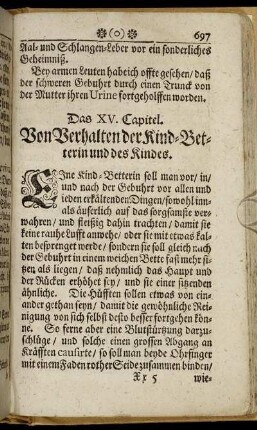 ❀ (o) ❀ 697
Aal- und Schlangen-Leber vor ein sonderliches
Geheimniß.
Bey armen Leuten habe ich offte gesehen/ daß
der schweren Gebuhrt durch einen Trunck von
der Mutter ihren Urine fortgeholffen worden.
Das XV. Capitel.
Von Verhalten der Kind-Bet-
terin und des Kindes.
EIne Kind-Betterin soll man vor/ in/
und nach der Gebuhrt vor allen und
ieden erkältenden Dingen/ sowohl inn-
als äuserlich auf das sorgsamste ver-
wahren/ und fleißig dahin trachten/ damit sie
keine rauhe Lufft anwehe/ oder sie mit etwas kal-
ten besprenget werde/ sondern sie soll gleich nach
der Gebuhrt in einem weichen Bette fast mehr si-
tzen als liegen/ daß nehmlich das Haupt und
der Rücken erhöhet sey/ und sie einer sitzenden
ähnliche. Die Hüfften sollen etwas von ein-
ander gethan seyn/ damit die gewöhnliche Rei-
nigung von sich selbst desto besser fortgehen kön-
ne. So ferne aber eine Blutstürtzung darzu-
schlüge/ und solche einen grossen Abgang an
Kräfften causirte/ so soll man beyde Ohrfinger
mit einem Faden rother Seide zusammen binden/
Xx 5 wie-